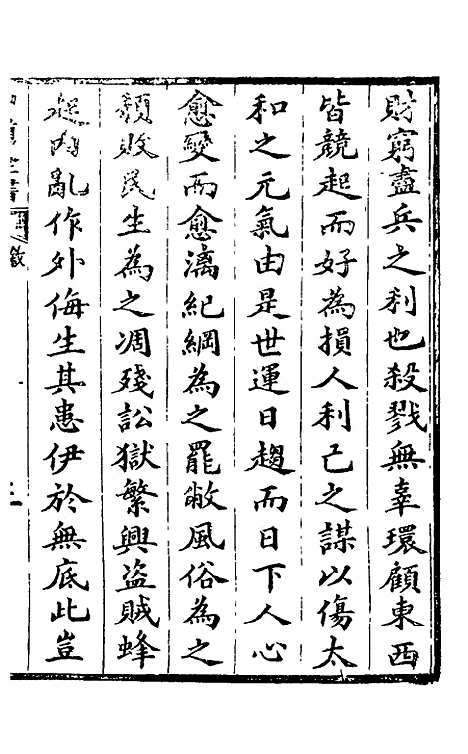 財窮盡兵之利也殺戮無辜環顧東西
皆競起而好為損人利己之謀以傷太
和之元氣由是世運日趨而日下人心
愈變而愈漓紀綱為之罷敝風俗為之
頹敗民生為之凋殘訟獄繁興盜賊蜂
起內亂作外侮生其患伊於無底此豈